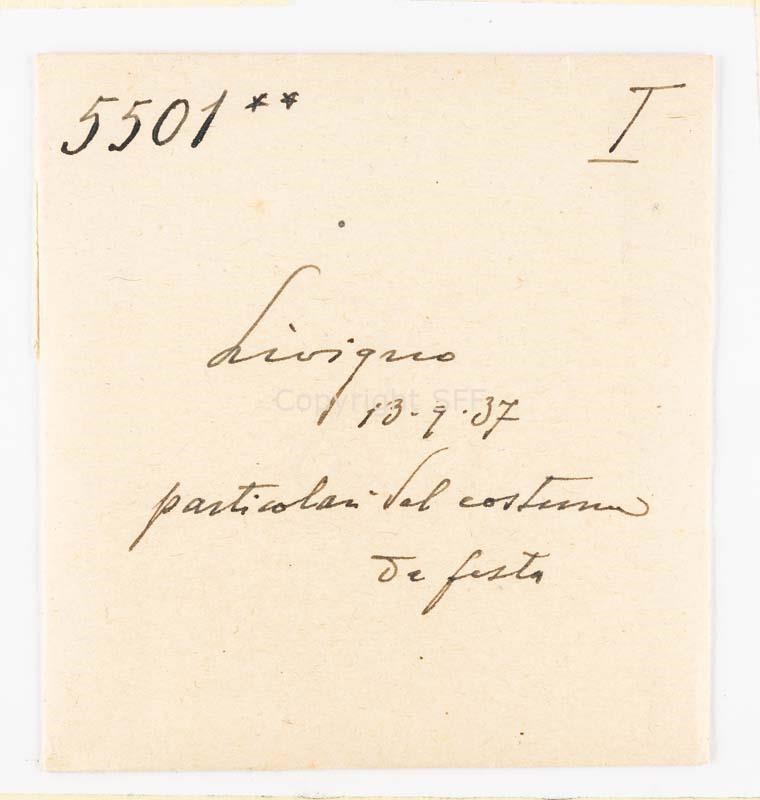 5501** I
Livigno
Copyright SFF
13.9.37
particolari del costume
da festa